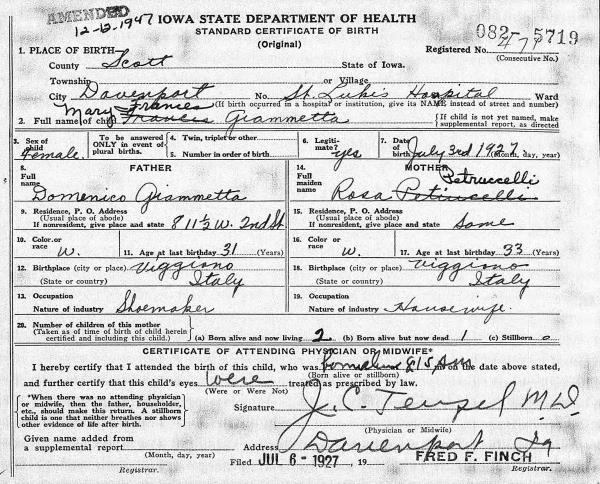 AMENDED
12-12-1947
IOWA STATE DEPARTMENT OF HEALTH
STANDARD CERTIFICATE OF BIRTH
(Original)
082-5719
1. PLACE OF BIRTH
Registered No.
(Consecutive No.)
County Scott State of Iowa.
Township or Village
City Davenport No. St. Luke's Hospital Ward
(If birth occurred in a hospital or institution, give its NAME instead of street and number)
Mary Frances
2. Full name of child Francis Giammetta
{If child is not yet named, make supplemental report, as directed
3. Sex of child Female
To be answered ONLY in event of plural births.
4. Twin, triplet or other
5. Number in order of birth
6. Legitimate? yes
7. Date of birth July 3rd 1927 (Month, day, year)
8. FATHER
Full name Domenico Giammetta
14. MOTHER
Full maiden name Rosa Petruccelli
Petruccelli
9. Residence, P. O. Address
(Usual place of abode)
If nonresident, give place and state 811½ W. 2nd St.
15. Residence, P. O. Address
(Usual place of abode)
If nonresident, give place and state Same
10. Color or race W.
11. Age at last birthday 31 (Years)
16. Color or race W.
17. Age at last birthday 33 (Years)
12. Birthplace (city or place) Viggiano
(State or country) Italy
18. Birthplace (city or place) Viggiano
(State or country) Italy
13. Occupation
Nature of industry Shoemaker
19. Occupation
Nature of industry Housewife.
20. Number of children of this mother
(Taken as of time of birth of child herein certified and including this child.)
(a) Born alive and now living 2 (b) Born alive but now dead 1 (c) Stillborn 0
CERTIFICATE OF ATTENDING PHYSICIAN OR MIDWIFE*
I hereby certify that I attended the birth of this child, who was born alive 8:15 A.m. on the date above stated.
(Born alive or stillborn)
and further certify that this child's eyes were treated as prescribed by law.
(Were or Were Not)
*When there was no attending physician or midwife, then the father, householder, etc., should make this return. A stillborn child is one that neither breathes nor shows other evidence of life after birth.
Signature J. C. M.D.
(Physician or Midwife)
Given name added from a supplemental report
(Month, day, year)
Address Davenport Ia
Filed JUL 6 - 1927, 19 FRED F. FINCH
Registrar.
Registrar.